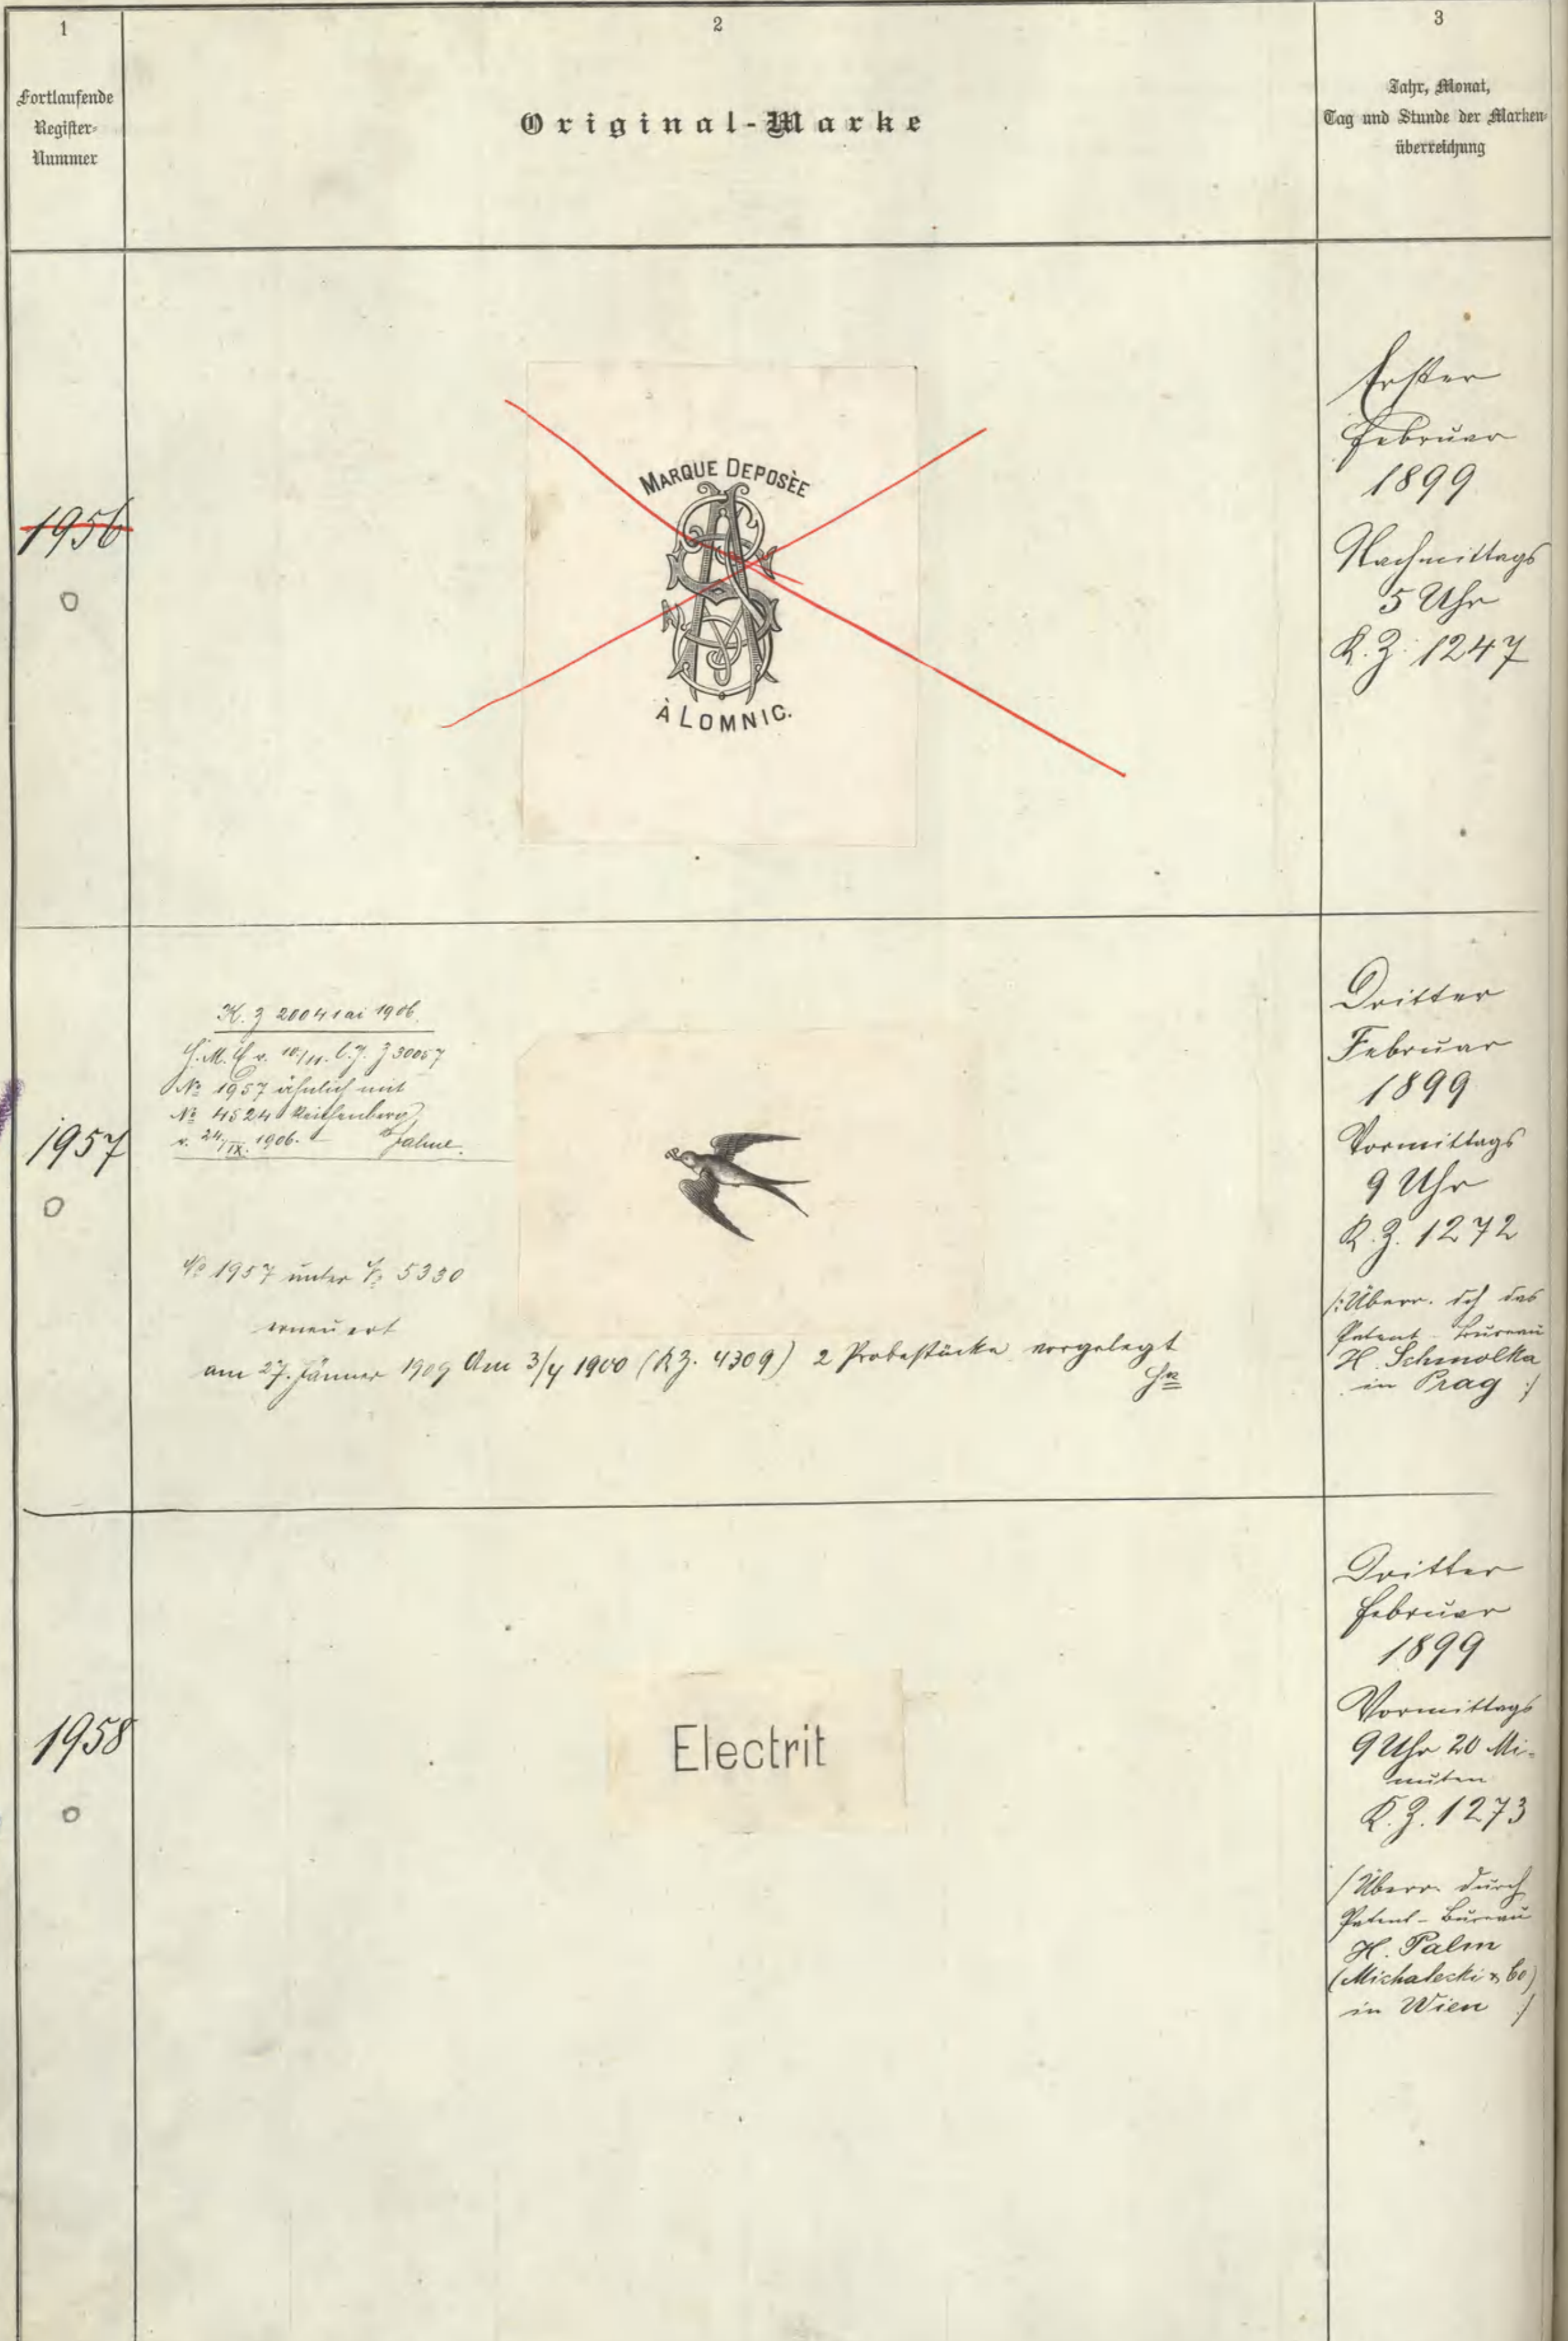 1
2
3
Fortlaufende
Register-
Nummer
Original-Marke
Jahr, Monat,
Tag und Stunde der Marken-
überreichung
1956
MARQUE DEPOSÈE
À LOMNIC.
Erster
Februar
1899
Nachmittags
5 Uhr
K.Z. 1247
1957
K. Z 20041 ai 1906.
H.M.E v. 10/11. l.J. Z 30057
No 1957 ähnlich mit
No 4524 Reichenberg
v. 24/IX. 1906.
No 1957 unter No 5330
erneuert
am 27. Jänner 1909 Am 3/4 1900 (KZ. 4309) 2 Probestücke vorgelegt
Dritter
Februar
1899
Vormittags
9 Uhr
K.Z. 1272
/:Überr. dch das
Patent-Bureau
H. Schmolka
in Prag :/
1958
Electrit
Dritter
Februar
1899
Vormittags
9 Uhr 20 Mi-
nuten
K.Z. 1273
/Überr. durch
Patent-Bureau
H. Palm
(Michalecki & Co)
in Wien :/